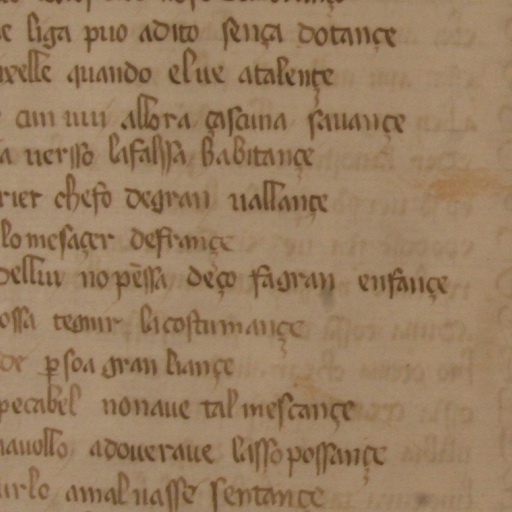 e liga puo adito sença dotançe
xelle quando el ue atalençe
allora çascuna sauançe
a uersso la falssa babitançe
rier che fo de gran uallançe
lo mesager de françe
dellui no pẽssa deço fa gran enfançe
ossa tegnir la costumançe
de ꝑ soa gran liançe
pecabel non aue tal mescançe
auollo adoueraue lasso possançe
urlo a mal nasse sentançe